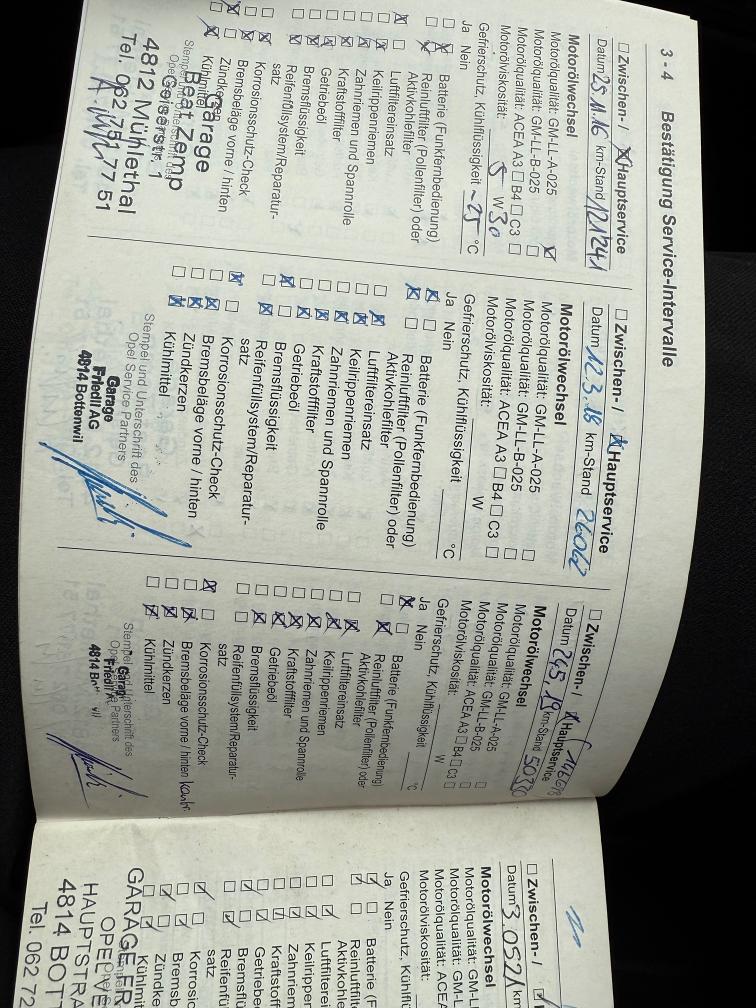 3 - 4 Bestätigung Service-Intervalle
Zwischen- / Hauptservice
Datum 25.11.16 km-Stand 121'241
Motorölwechsel
Motorölqualität: GM-LL-A-025
Motorölqualität: GM-LL-B-025
Motorölqualität: ACEA A3 B4 C3
Motorölviskosität: 5 W 30
Gefrierschutz, Kühlflüssigkeit -25 °C
Ja Nein
Batterie (Funkfernbedienung)
Reinluftfilter (Pollenfilter) oder
Aktivkohlefilter
Luftfiltereinsatz
Keilrippenriemen
Zahnriemen und Spannrolle
Kraftstofffilter
Getriebeöl
Bremsflüssigkeit
Reifenfüllsystem/Reparatur-
satz
Korrosionsschutz-Check
Bremsbeläge vorne / hinten
Zündkerzen
Kühlmittel
Garage
Beat Zemp
Geiserstr. 1
4812 Mühlethal
Tel. 062 751 77 51
Zwischen- / Hauptservice
Datum 12.3.18 km-Stand 26062
Motorölwechsel
Motorölqualität: GM-LL-A-025
Motorölqualität: GM-LL-B-025
Motorölqualität: ACEA A3 B4 C3
Motorölviskosität: W
Gefrierschutz, Kühlflüssigkeit °C
Ja Nein
Batterie (Funkfernbedienung)
Reinluftfilter (Pollenfilter) oder
Aktivkohlefilter
Luftfiltereinsatz
Keilrippenriemen
Zahnriemen und Spannrolle
Kraftstofffilter
Getriebeöl
Bremsflüssigkeit
Reifenfüllsystem/Reparatur-
satz
Korrosionsschutz-Check
Bremsbeläge vorne / hinten
Zündkerzen
Kühlmittel
Stempel und Unterschrift des
Opel Service Partners
Garage
Friedli AG
4814 Bottenwil
Zwischen- / Hauptservice
Datum 24.5.19 km-Stand
Motorölwechsel
Motorölqualität: GM-LL-A-025
Motorölqualität: GM-LL-B-025
Motorölqualität: ACEA A3 B4 C3
Motorölviskosität: W
Gefrierschutz, Kühlflüssigkeit °C
Ja Nein
Batterie (Funkfernbedienung)
Reinluftfilter (Pollenfilter) oder
Aktivkohlefilter
Luftfiltereinsatz
Keilrippenriemen
Zahnriemen und Spannrolle
Kraftstofffilter
Getriebeöl
Bremsflüssigkeit
Reifenfüllsystem/Reparatur-
satz
Korrosionsschutz-Check
Bremsbeläge vorne / hinten
Zündkerzen
Kühlmittel
Stempel und Unterschrift des
Opel Service Partners
Garage
Friedli AG
4814
Zwischen- /
Datum 3.0521 km
Motorölwechsel
Motorölqualität: GM-L
Motorölqualität: GM-L
Motorölqualität: ACEA
Motorölviskosität:
Gefrierschutz, Kühlflü
Ja Nein
Batterie (F
Reinluftfilte
Aktivkohlef
Luftfilterei
Keilripper
Zahnriem
Kraftstof
Getriebe
Bremsflü
Reifenfü
satz
Korrosi
Bremsb
Zündke
Kühlmit
GARAGE FR
OPEL VE
HAUPTSTRA
4814 BOTT
Tel. 062 72